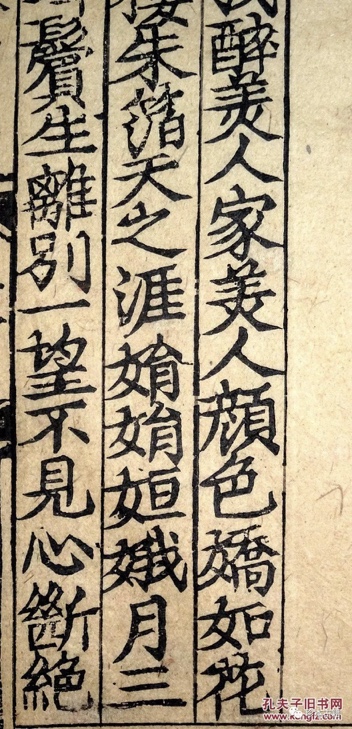 醉美人家美人顔色嬌如花
樓朱箔天之涯娟娟姮娥月三
鬢生離别一望不見心斷絶
孔夫子旧书网
www.kongfz.com